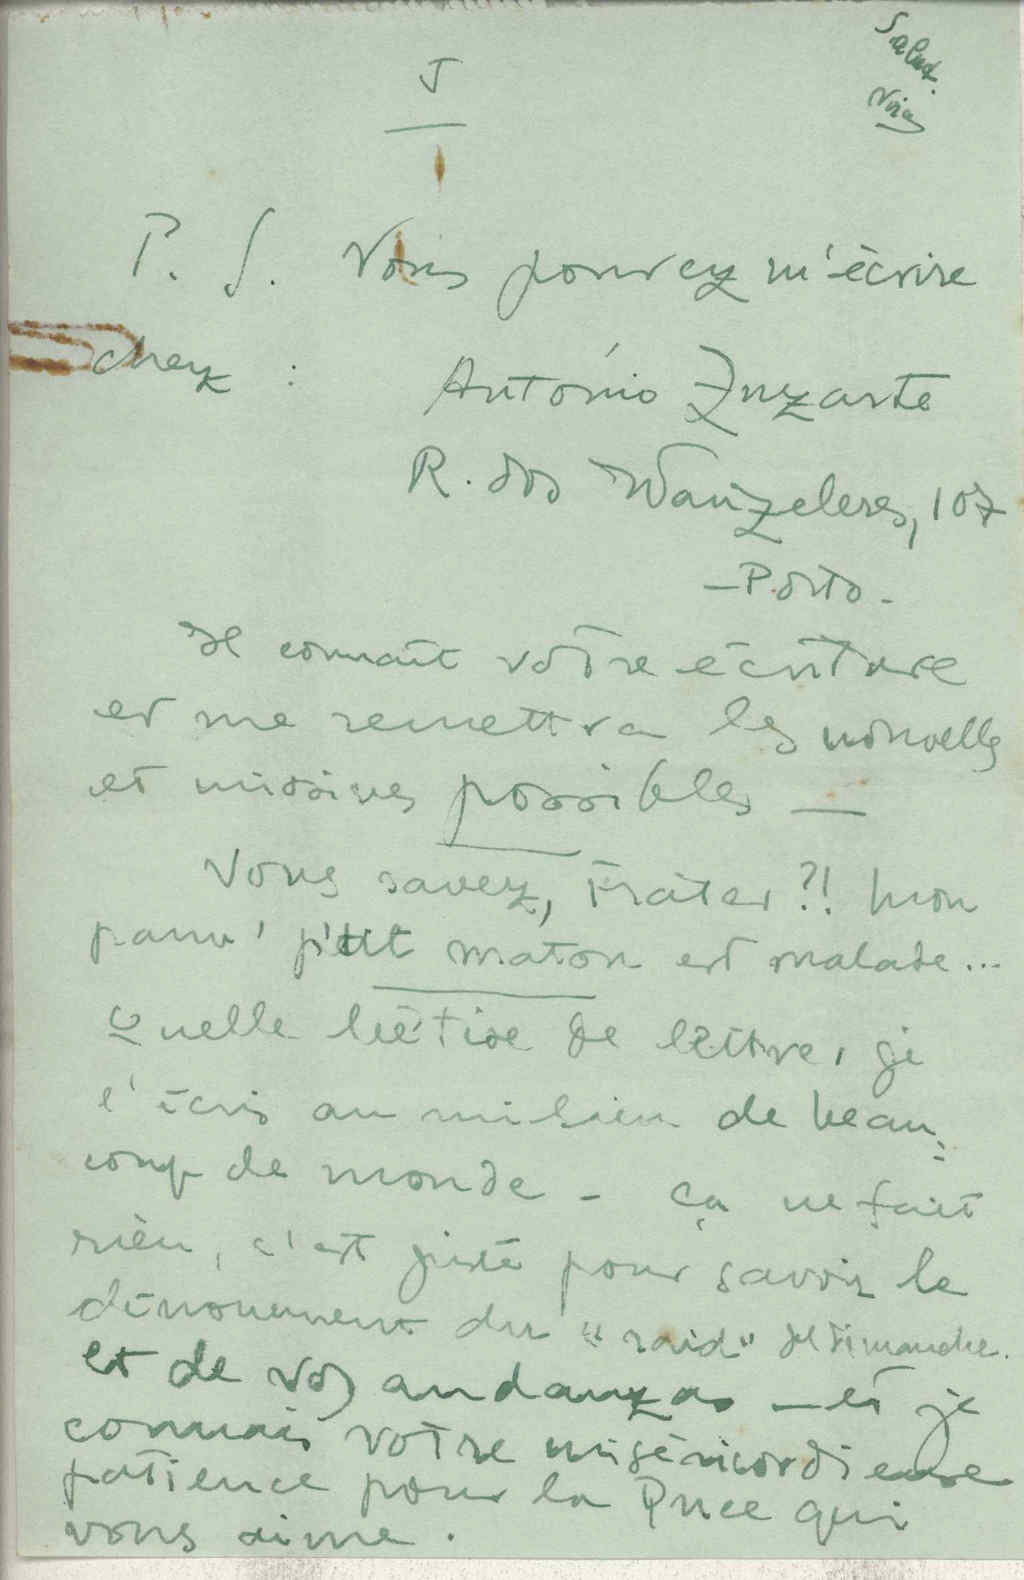 Salut.
I
P. S. Vous pouvez m'écrire
chez : António Zuzarte
R. dos Vanzeleres, 107
— Porto -
Il connaît votre écriture
et me remettra les nouvelles
et missives possibles —
Vous savez, Frater ?! Mon
pauv' p'tit maton est malade...
Quelle bêtise de lettre, je
l'écris au milieu de beau=
coup de monde - ça ne fait
rien, c'est juste pour savoir le
dénouement du "raid" dimanche.
et de vos andanzas — et je
connais votre miséricordieuse
patience pour la Puce qui
vous aime.